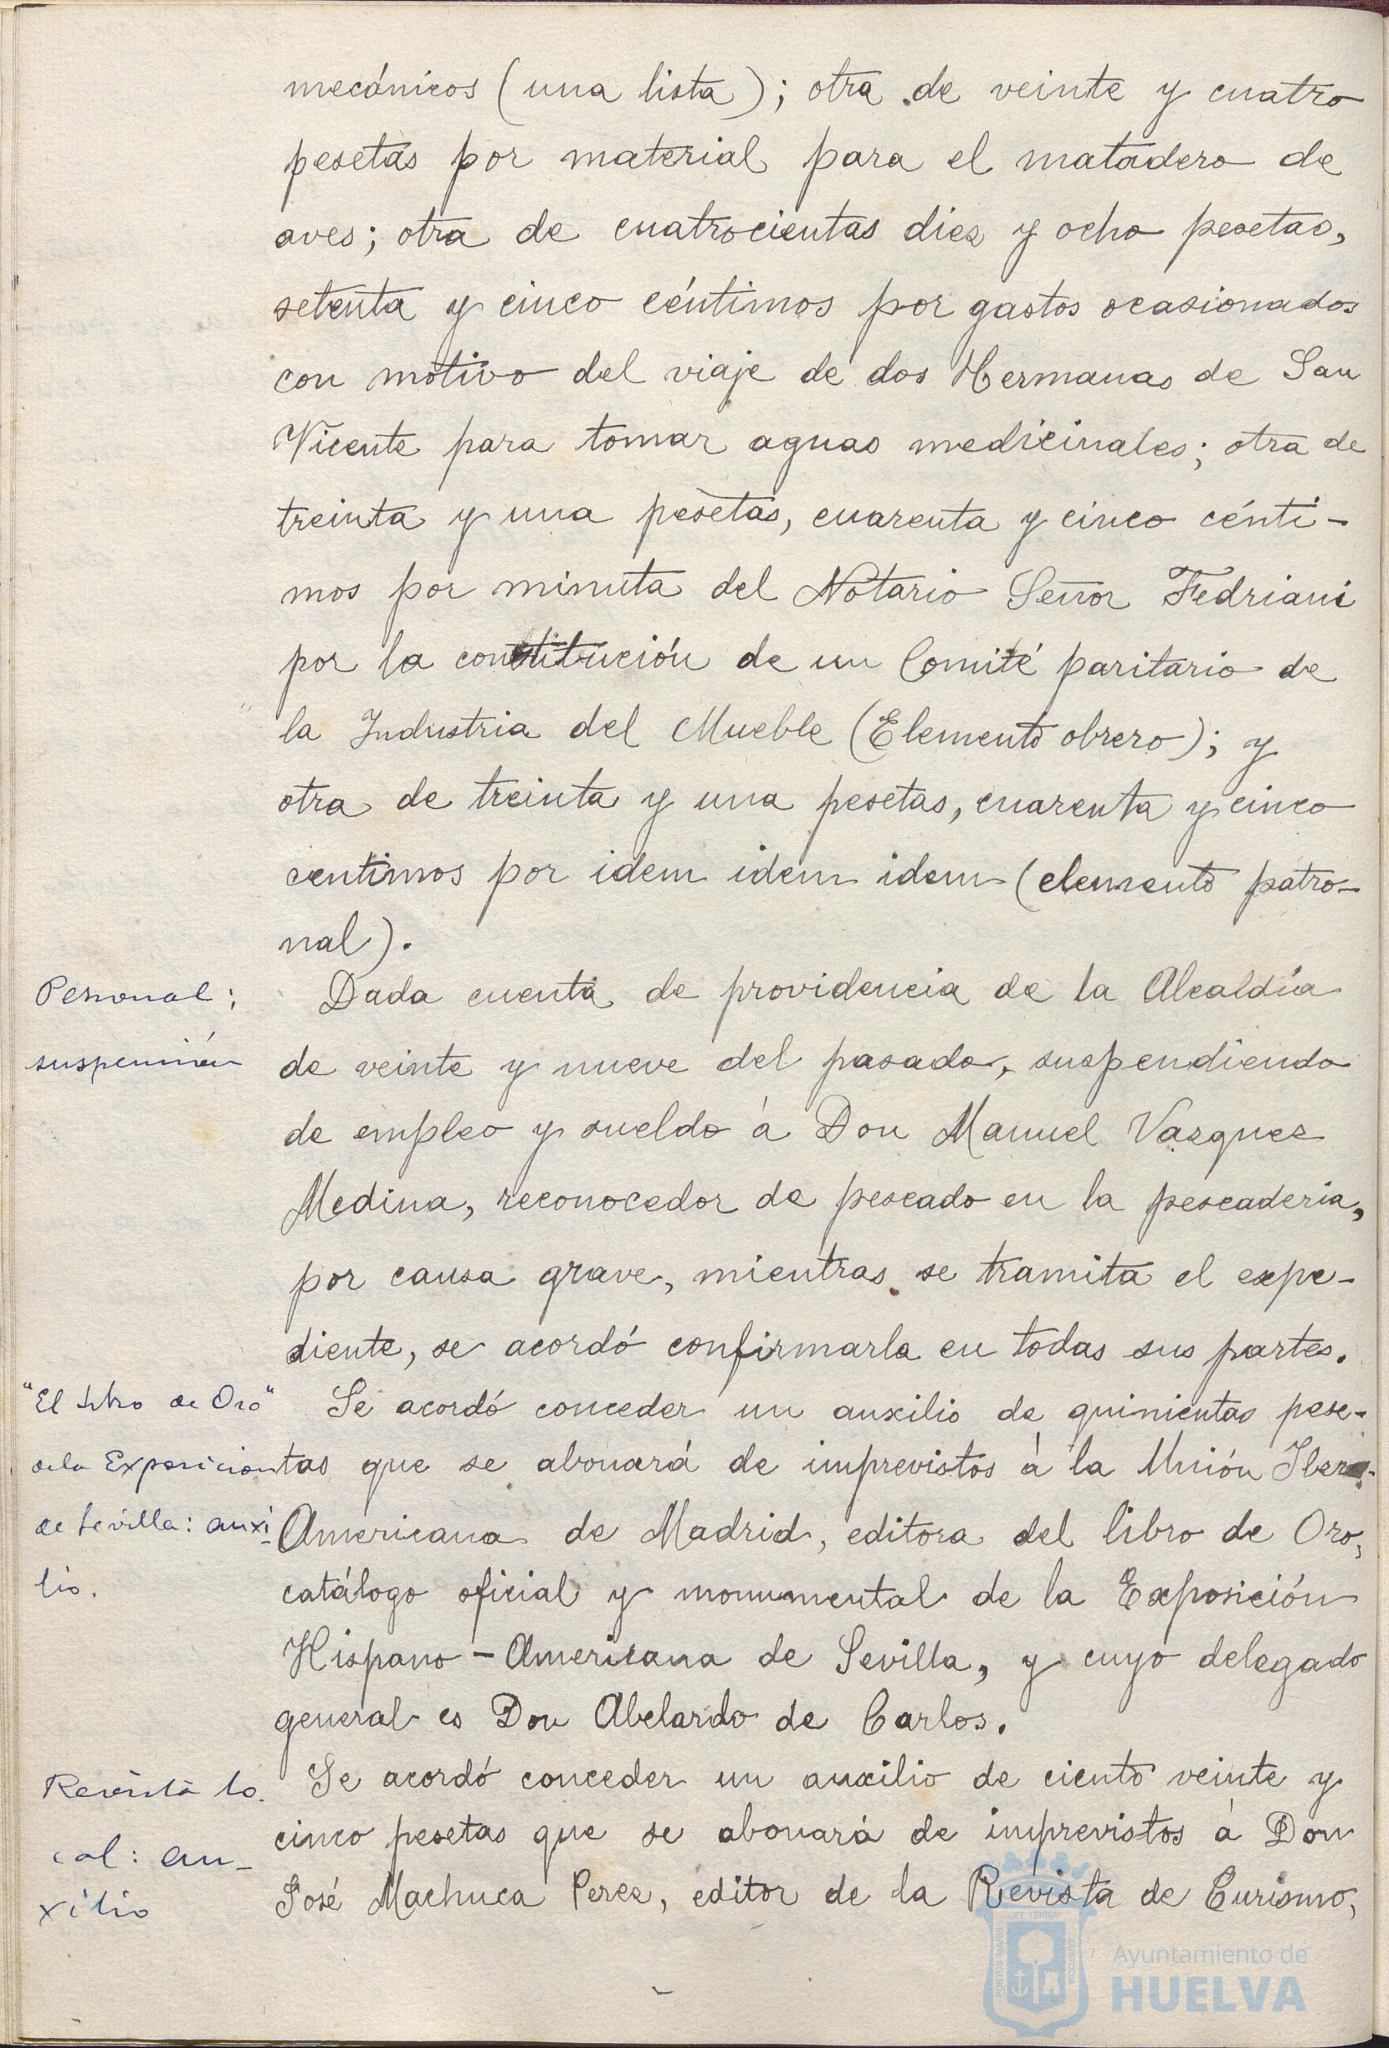 mecánicos (una lista); otra de veinte y cuatro
pesetas por material para el matadero de
aves; otra de cuatrocientas diez y ocho pesetas,
setenta y cinco céntimos por gastos ocasionados
con motivo del viaje de dos Hermanas de San
Vicente para tomar aguas medicinales; otra de
treinta y una pesetas, cuarenta y cinco cénti-
mos por minuta del Notario Señor Fedriani
por la constitución de un Comité paritario de
la Industria del Mueble (Elemento obrero); y
otra de treinta y una pesetas, cuarenta y cinco
centimos por idem idem idem (elemento patro-
nal).
Personal:
suspensión
Dada cuenta de providencia de la Alcaldía
de veinte y nueve del pasado, suspendiendo
de empleo y sueldo á Don Manuel Vazquez
Medina, reconocedor de pescado en la pescaderia,
por causa grave, mientras se tramita el expe-
diente, se acordó confirmarla en todas sus partes.
"El libro de Oro"
de la Exposicion
de Sevilla: auxi-
lio.
Se acordó conceder un auxilio de quinientas pese-
tas que se abonará de imprevistos á la Unión Ibero-
Americana de Madrid, editora del libro de Oro,
catálogo oficial y monumental de la Exposición
Hispano-Americana de Sevilla, y cuyo delegado
general es Don Abelardo de Carlos.
Revista lo
cal: au-
xilio
Se acordó conceder un auxilio de ciento veinte y
cinco pesetas que se abonará de imprevistos á Don
José Machuca Perez, editor de la Revista de Turismo,
Ayuntamiento de
HUELVA